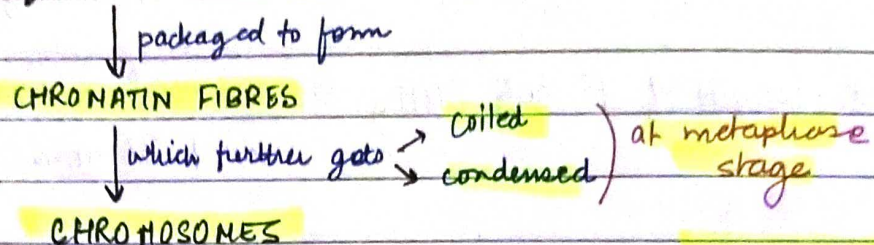 packaged to form
CHRONATIN FIBRES
which further gets → coiled
↘ condensed ) at metaphase stage
CHROMOSOMES